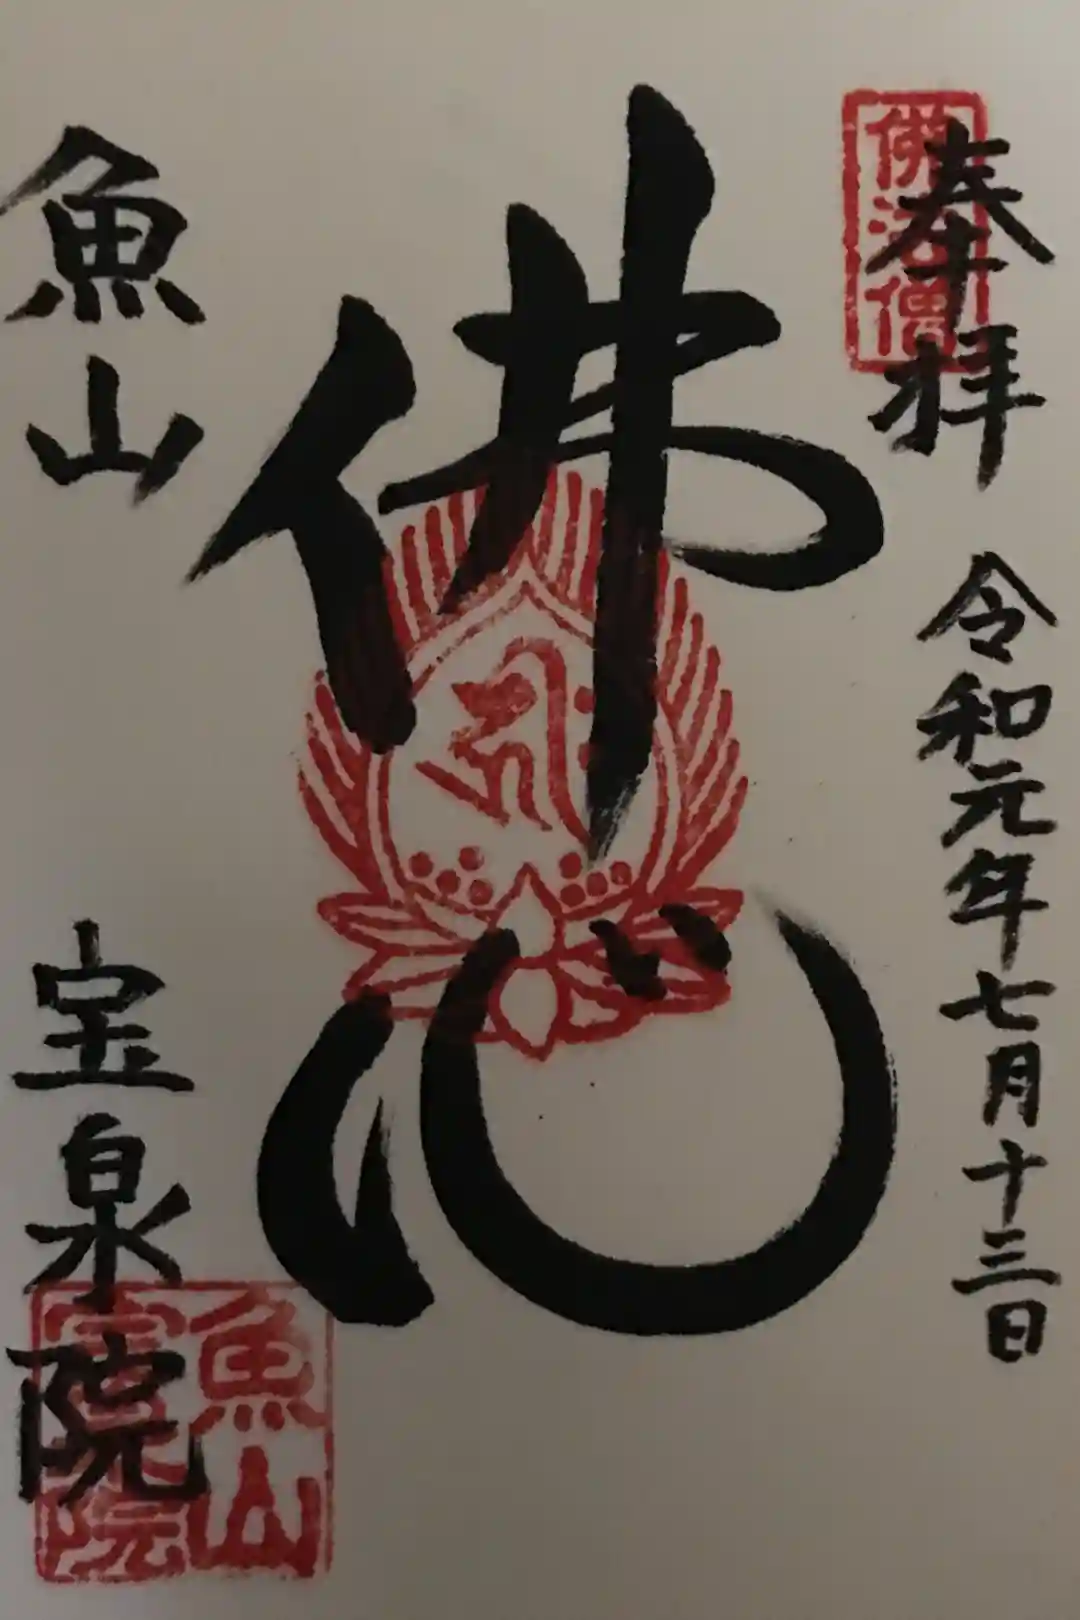 奉拝
令和元年七月十三日
佛法僧
佛心
魚山
宝泉院
魚山